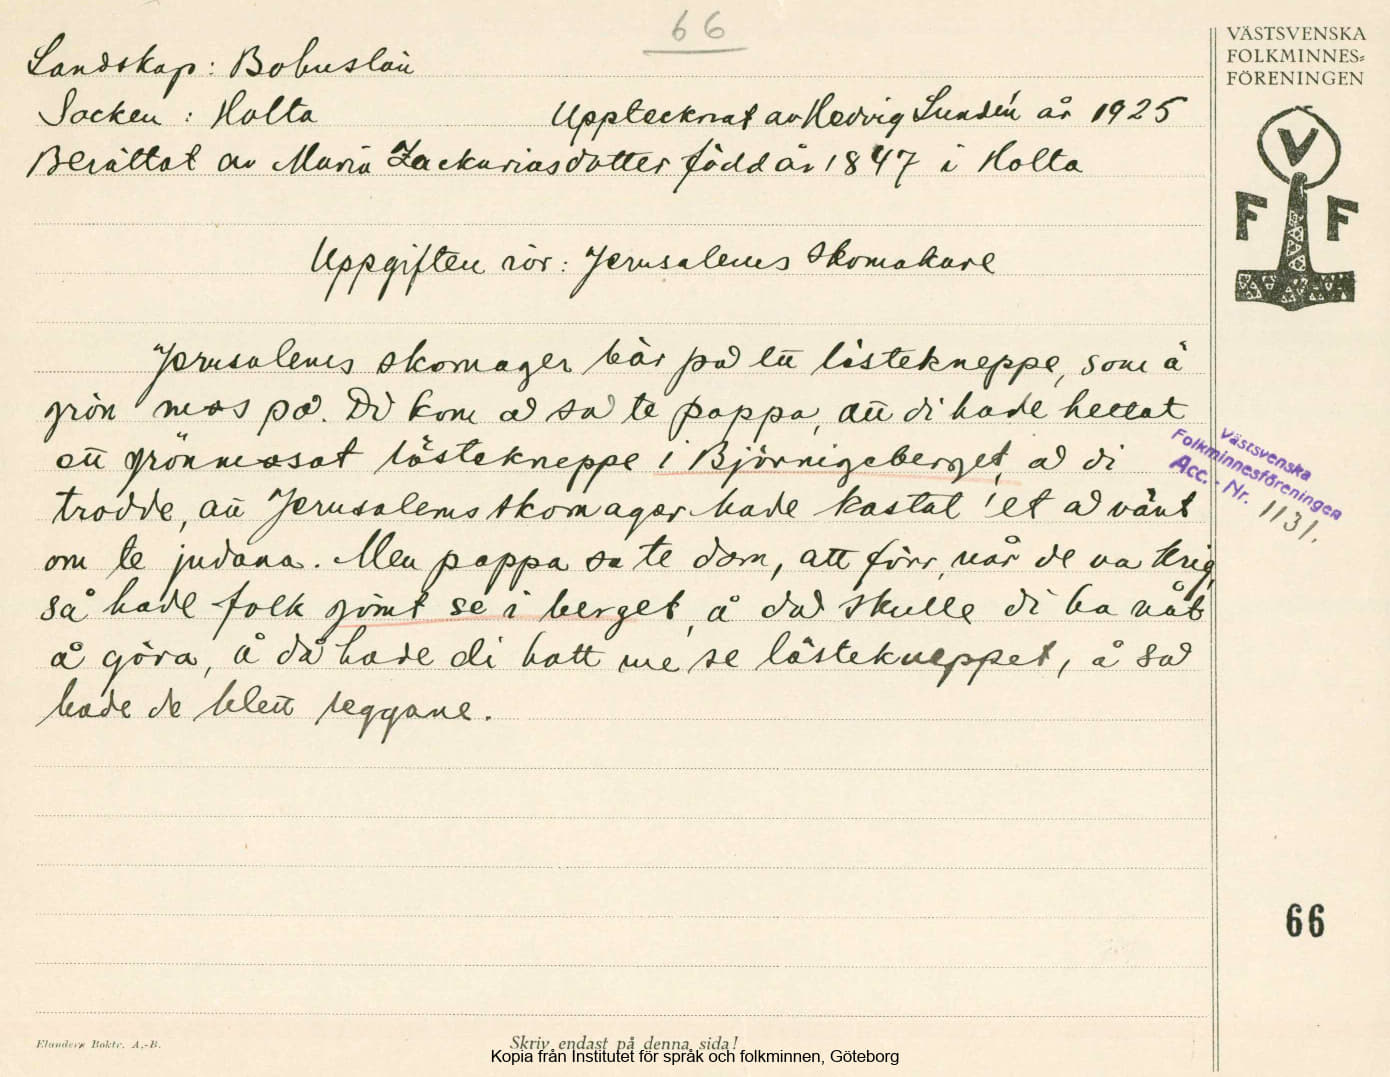 66
VÄSTSVENSKA
FOLKMINNES-
FÖRENINGEN
Landskap: Bohuslän
Socken: Holta Upptecknat av Hedvig Lundén år 1925
Berättat av Maria Zackariasdotter född år 1847 i Holta
V
F F
Uppgiften rör: Jerusalems skomakare
Jerusalems skomager bär på ett lästekneppe, som ä
grön mos på. Di kom å sa te pappa, att di hade hettat
ett grönmosat lästekneppe i Björnigeberget, å di
trodde, att Jerusalems skomager hade kastat 'et å vänt
om te judana. Men pappa sa te dom, att förr, når de va krig,
så hade folk gömt se i berget, å då skulle di ha nåt
å göra, å då hade di hatt me se lästekneppet, å så
hade de blett leggane.
Västsvenska
Folkminnesföreningen
Acc. - Nr. 1131.
66
Elanders Boktr. A.-B.
Skriv endast på denna sida!
Kopia från Institutet för språk och folkminnen, Göteborg